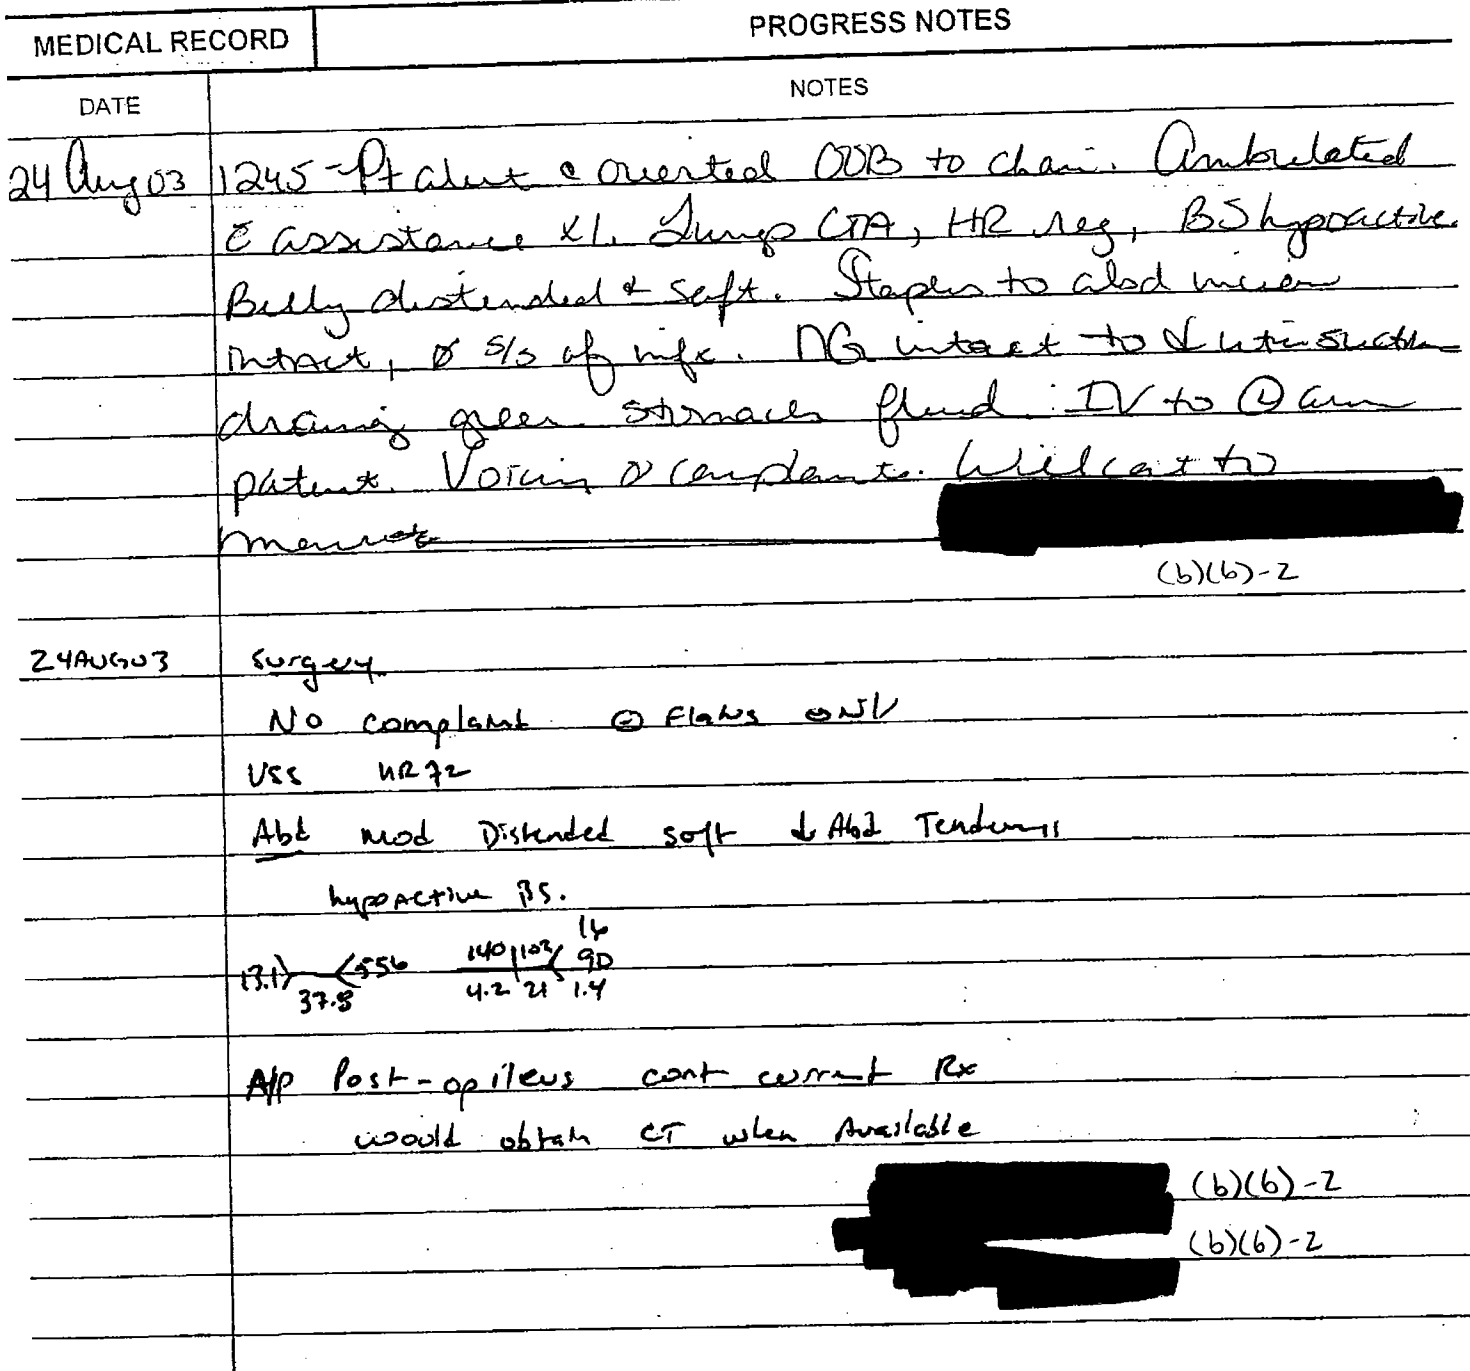 MEDICAL RECORD
PROGRESS NOTES
DATE
NOTES
24 Aug 03 1245 - Pt alert & oriented OOB to chair. Ambulated
c̄ assistance x1. Lungs CTA, HR reg, BS hypoactive
Belly distended & soft. Staples to abd
intact, Ø s/s of infx. NG intact to suction
draining green stomach fluid. IV to Ⓛ arm
patent. Voicing Ø complaints. Will cont to
(b)(6)-2
24AUG03 Surgery
No complaint ⊖ Flatus ⊖ N/V
VSS HR 72
Abd mod Distended soft ↓ Abd Tenderness
hypoactive BS.
16
13.1 556 140 102 90
37.8 4.2 21 1.4
A/P Post-op ileus cont current Rx
would obtain CT when Available
(b)(6)-2
(b)(6)-2